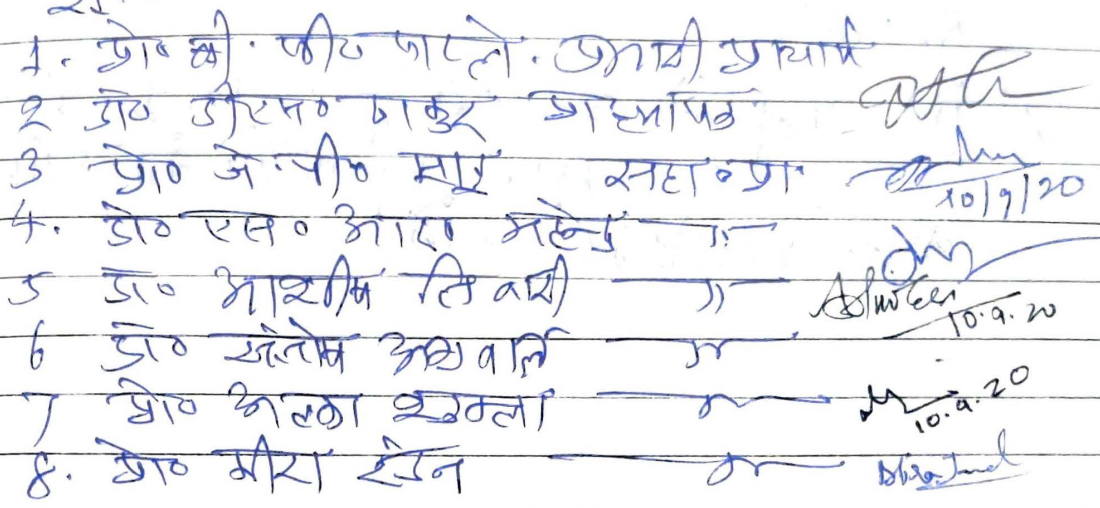 1. प्रो० बी. पी० पाटले. प्रभारी प्राचार्य
2 डॉ० डी०एस० ठाकुर प्राध्यापक
3 प्रो० जे. पी० सहा० प्रा. 10/9/20
4. डॉ० एस० आर० महेन्द्र —"—
5 डॉ० आशीष तिवारी —"— 10.9.20
6 डॉ० संतोष अग्रवाल —"—
7 प्रो० अलका शुक्ला —"— 10.9.20
8. प्रो० मीरा टंडन —"—